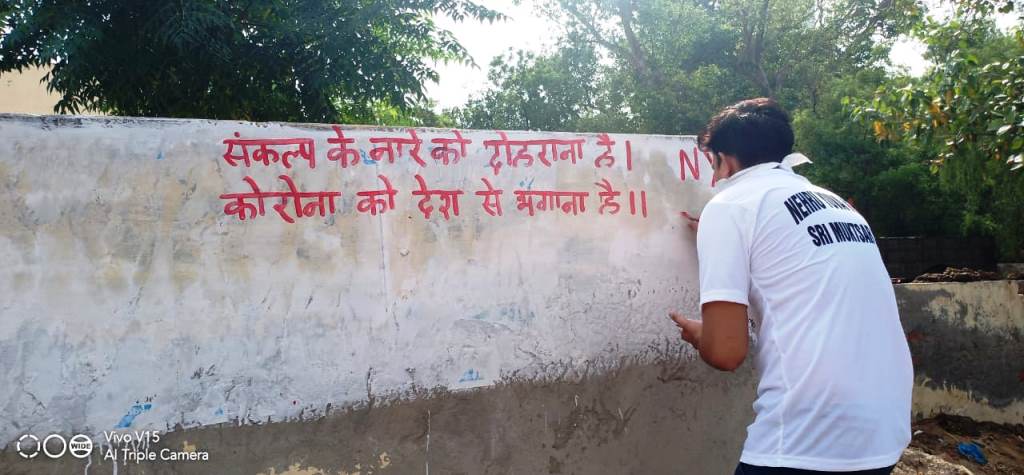 संकल्प के नारे को दोहराना है।
कोरोना को देश से भगाना है॥
NY
NEHRU
SRI MUKTSAR
WIDE
Vivo V15
AI Triple Camera